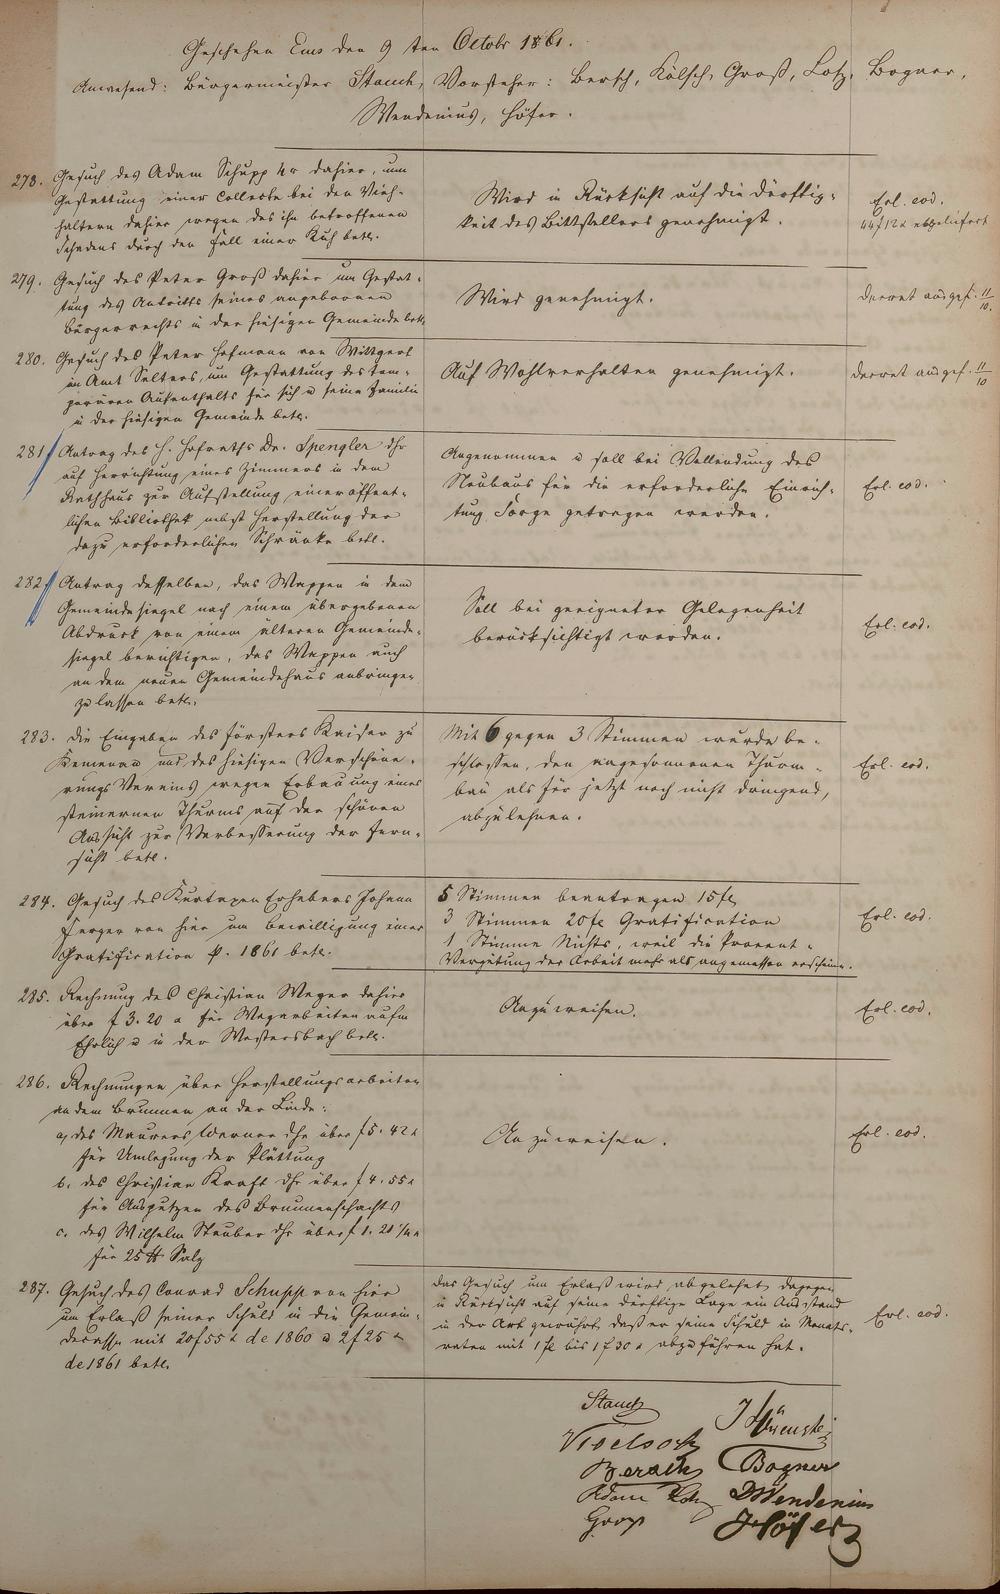 Geschehen Ems den 9 ten Octobr 1861.
Anwesend: Bürgermeister Stauch, Vorsteher: Bersch, Kölsch, Groß, Lotz, Bogner,
Wendenius, Höfer.
278. Gesuch des Adam Schupp dahier, um
Gestattung einer Collecte bei den Vieh-
haltern dahier wegen des ihn betroffenen
Schadens durch den Fall einer Kuh betr.
Wird in Rücksicht auf die Dürftig-
keit des Bittstellers genehmigt.
Erl. eod.
279. Gesuch des Peter Groß dahier um Gestat-
tung des Antritts seines angebornen
Bürgerrechts in der hiesigen Gemeinde betr.
Wird genehmigt.
Decret ausgef. 11/10.
280. Gesuch des Peter Hofmann von Wittgert
im Amt Selters, um Gestattung des tem-
porären Aufenthalts für sich u seine Familie
in der hiesigen Gemeinde betr.
Auf Wohlverhalten genehmigt.
Decret ausgef. 11/10
281. Antrag des H. Hofraths Dr. Spengler dhr
auf Herrichtung eines Zimmers in dem
Rathhaus zur Aufstellung einer öffent-
lichen Bibliothek nebst Herstellung der
dazu erforderlichen Schränke betr.
Angenommen u soll bei Vollendung des
Neubaus für die erforderliche Einrich-
tung Sorge getragen werden.
Erl. eod.
282. Antrag desselben, das Wappen in dem
Gemeindesiegel nach einem übergebenen
Abdruck von einem älteren Gemeinde-
siegel berichtigen, das Wappen auch
an dem neuen Gemeindehaus anbringen
zu lassen betr.
Soll bei geeigneter Gelegenheit
berücksichtigt werden.
Erl. eod.
283. Die Eingaben des Försters Kaiser zu
Kemenau und des hiesigen Verschöne-
rungs Vereins wegen Erbauung eines
steinernen Thurms auf der schönen
Aussicht zur Verbesserung der Fern-
sicht betr.
Mit 6 gegen 3 Stimmen wurde be-
schlossen, den angesonnenen Thurm-
bau als für jetzt noch nicht dringend,
abzulehnen.
Erl. eod.
284. Gesuch des Kurtaxen Erhebers Johann
Ferger von hier um Bewilligung einer
Gratification p. 1861 betr.
5 Stimmen beantragen 15 fl
3 Stimmen 20 fl Gratification
1 Stimme Nichts, weil die Procent-
Vergütung der Arbeit mehr als angemessen erscheine.
Erl. eod.
285. Rechnung des Christian Weger dahier
über f 3. 20 x für Wegarbeiten aufm
Ehrlich u in der Wastersbach betr.
Anzuweisen.
Erl. eod.
286. Rechnungen über Herstellungsarbeiten
an dem Brunnen an der Linde:
a, des Maurers Werner dhr über f 5. 42 x
für Umlegung der Plättung
b. des Christian Kraft dhr über f 4. 55 x
für Ausputzen des Brunnenschachts
c. des Wilhelm Stauber dhr über f 1. 21 1/2 x
für 25 ℔ Salz
Anzuweisen.
Erl. eod.
287. Gesuch des Conrad Schupp von hier
um Erlaß seiner Schuld in die Gemein-
decasse mit 20 f 55 x de 1860 u 2 f 25 x
de 1861 betr.
Das Gesuch um Erlaß wird abgelehnt, dagegen
in Rücksicht auf seine dürftige Lage ein Ausstand
in der Art gewährt, daß er seine Schuld in Monats-
raten mit 1 fl bis 1 f 30 x abzuführen hat.
Erl. eod.
Stauch
Bersch
Bogner
Adam Lotz
DWendenius
Groß
Höfer